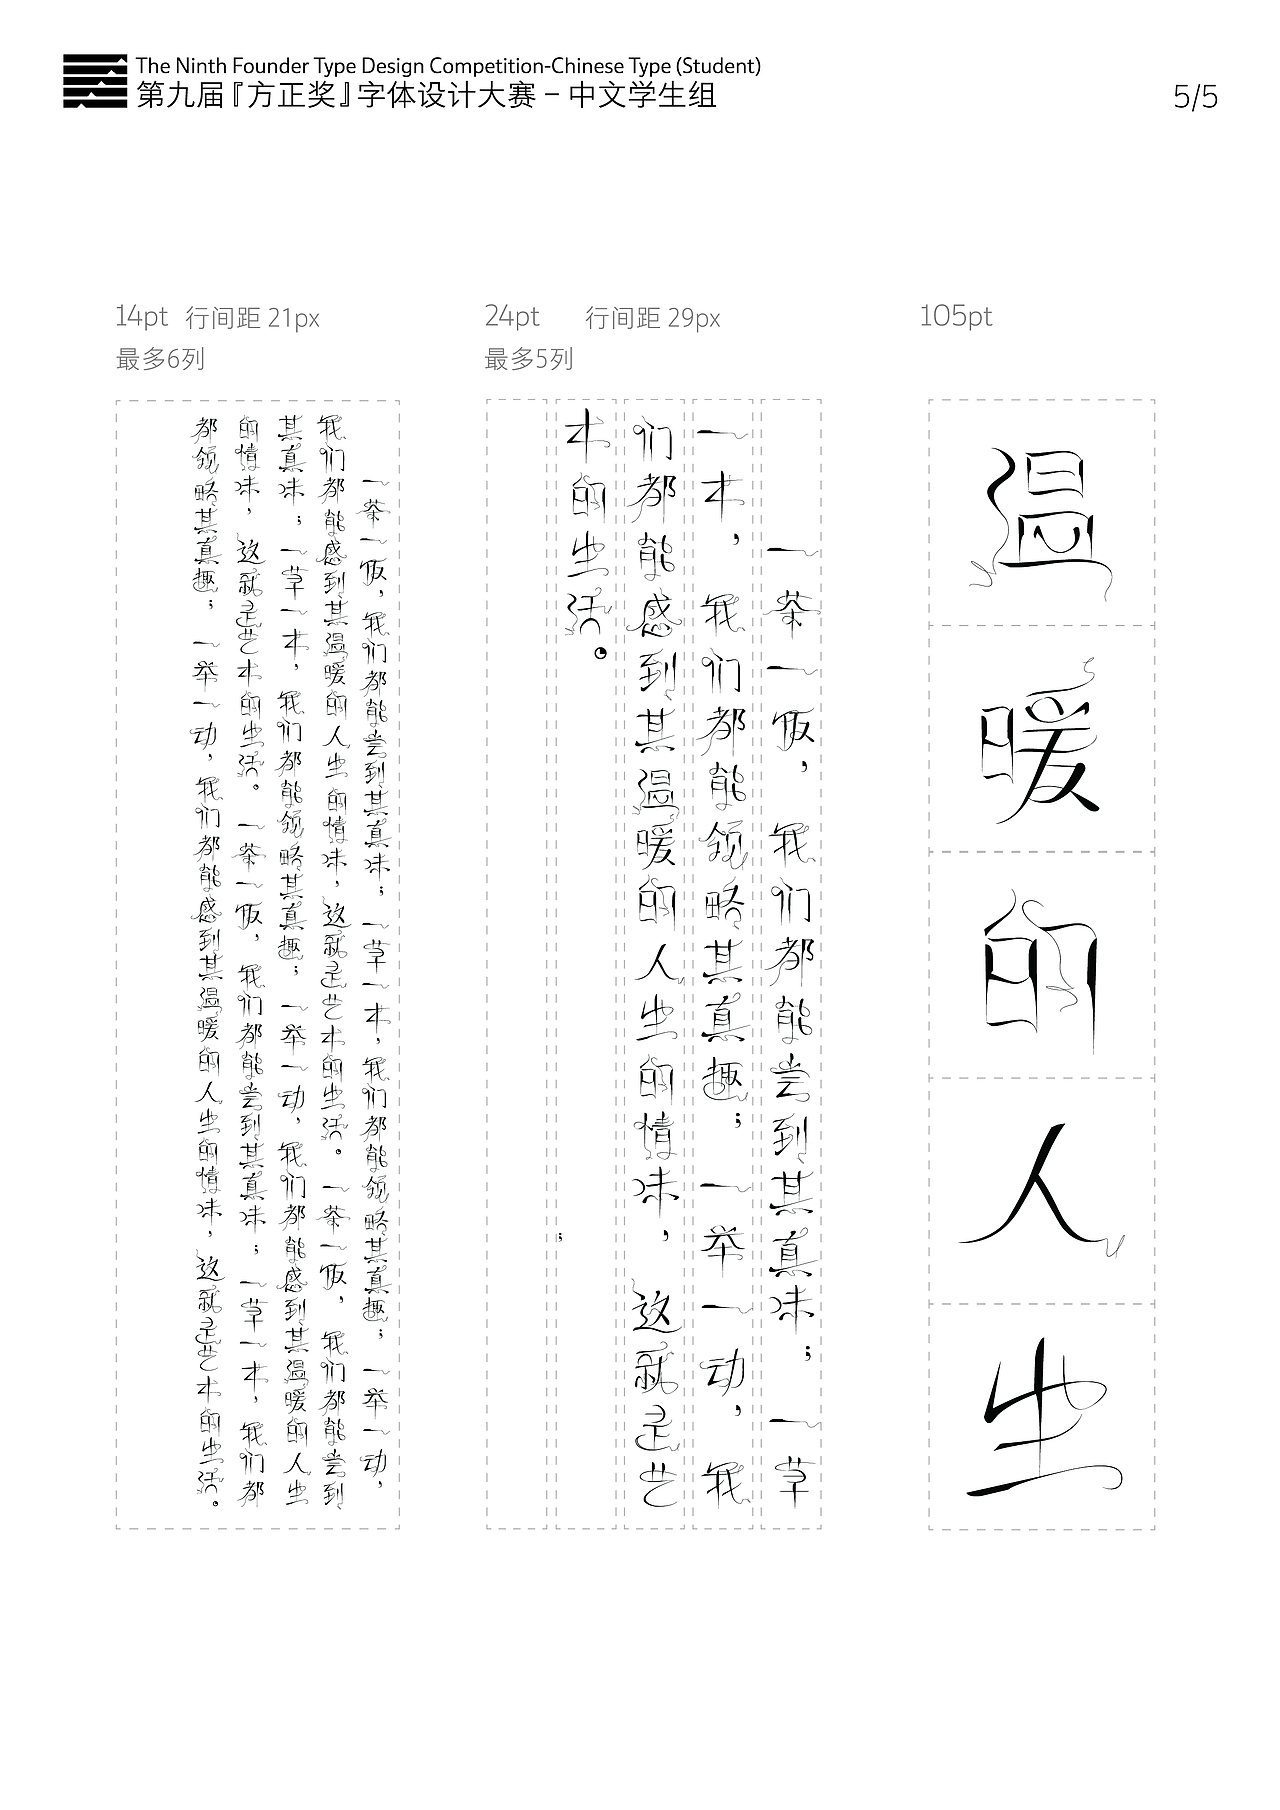 The Ninth Founder Type Design Competition-Chinese Type (Student)
第九届『方正奖』字体设计大赛 – 中文学生组
5/5
14pt 行间距 21px
最多6列
一茶一饭，我们都能尝到其真味；一草一木，我们都能领略其真趣；一举一动，
我们都能感到其温暖的人生的情味，这就是艺术的生活。一茶一饭，我们都能尝到
其真味；一草一木，我们都能领略其真趣；一举一动，我们都能感到其温暖的人生
的情味，这就是艺术的生活。一茶一饭，我们都能尝到其真味；一草一木，我们都
都领略其真趣；一举一动，我们都能感到其温暖的人生的情味，这就是艺术的生活。
24pt 行间距 29px
最多5列
一茶一饭，我们都能尝到其真味；一草
一木，我们都能领略其真趣；一举一动，我
们都能感到其温暖的人生的情味，这就是艺
术的生活。
；
105pt
温暖的人生